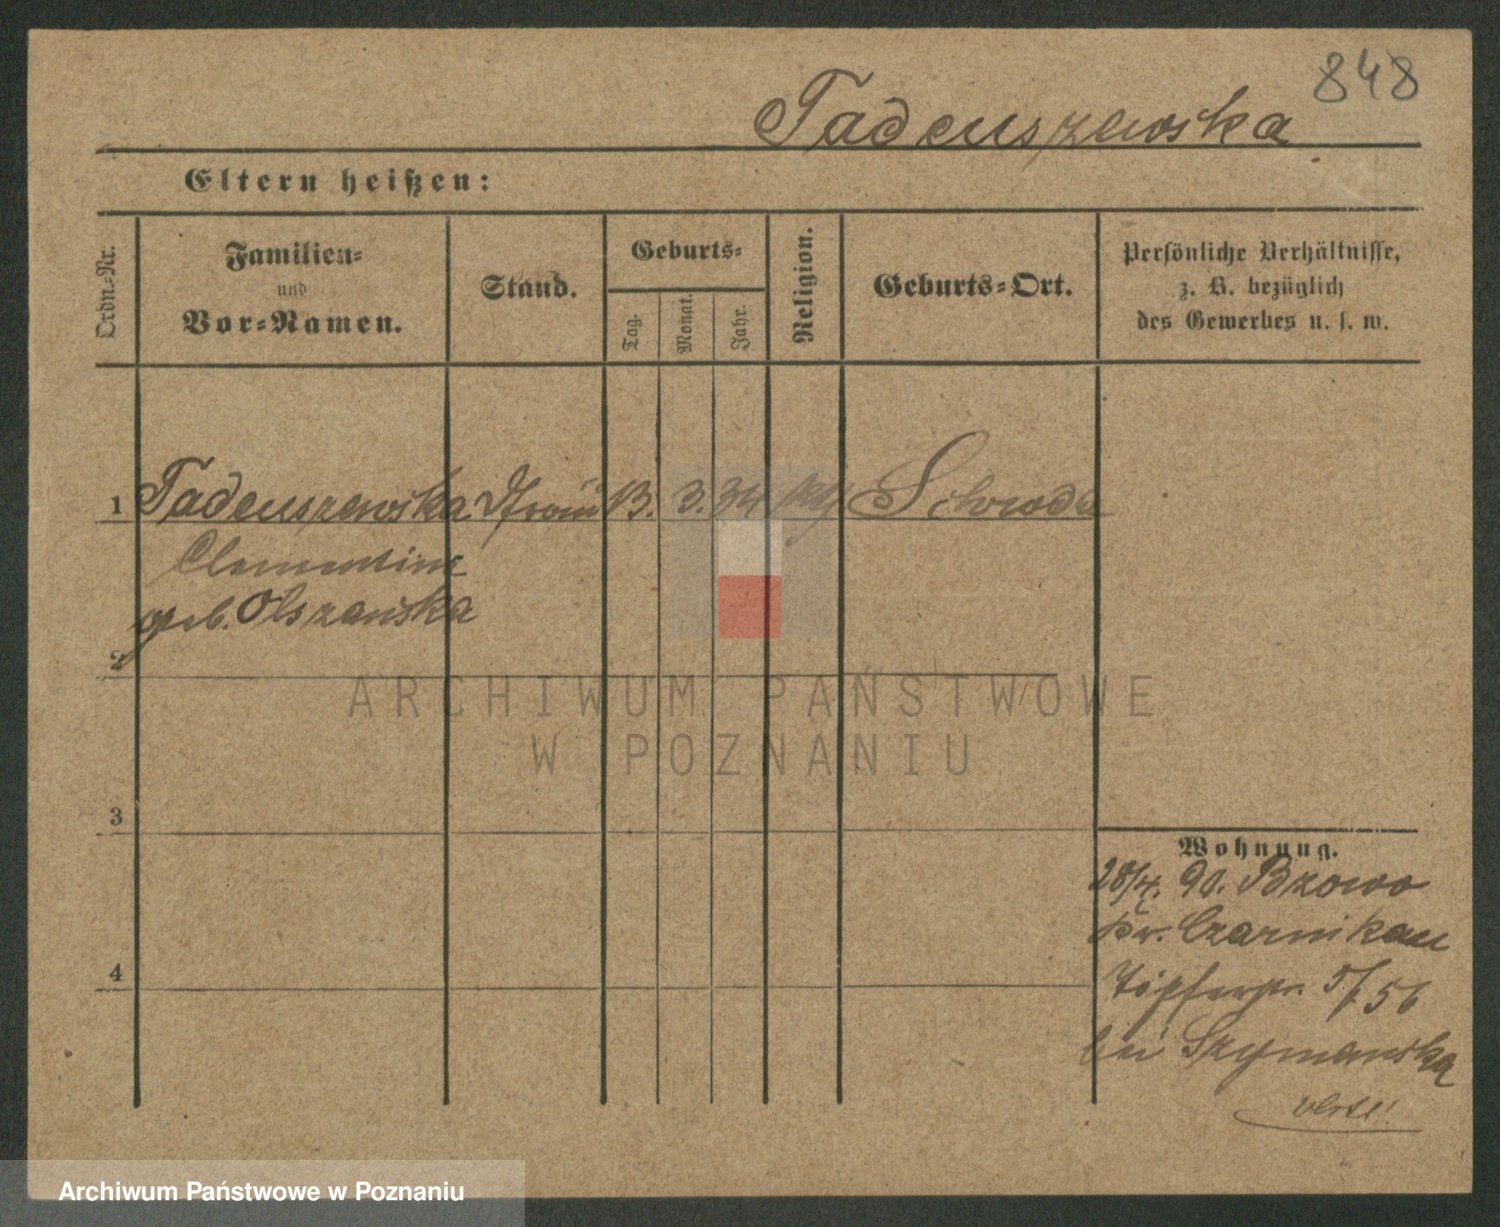 848
Tadeuszewska
Eltern heißen:
Ordn.-Nr.
Familien-
und
Vor-Namen.
Stand.
Geburts-
Tag.
Monat.
Jahr.
Religion.
Geburts-Ort.
Persönliche Verhältnisse,
z. B. bezüglich
des Gewerbes u. s. w.
1 Tadeuszewska 13. 3. 34 Schroda
Clementine
geb. Olszańska
2
ARCHIWUM PAŃSTWOWE
W POZNANIU
3
Wohnung.
28/4. 90. Bzowo
Kr. Czarnikau
4
Töpferstr. 5/56
bei Szymanska
Archiwum Państwowe w Poznaniu